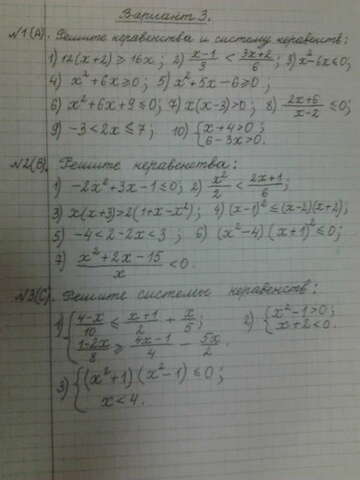 Вариант 3.
№1(А). Решите неравенства и систему неравенств:
1) 12(x+2) ≥ 16x; 2) (x-1)/3 < (3x+2)/6; 3) x²-6x≤0;
4) x²+6x≥0; 5) x²+5x-6≥0;
6) x²+6x+9≤0; 7) x(x-3)>0; 8) (2x+6)/(x-2) ≤0;
9) -3<2x≤7; 10) { x+4>0; 6-3x>0.
№2(В). Решите неравенства:
1) -2x²+3x-1≤0; 2) x²/2 < (2x+1)/6;
3) x(x+3)>2(1+x-x²); 4) (x-1)²≤(x-2)(x+2);
5) -4<2-2x<3; 6) (x²-4)(x+1)²≤0;
7) (x²+2x-15)/x <0.
№3(С). Решите системы неравенств:
1) { (4-x)/10 ≤ (x+1)/2 + x/5; (1-2x)/8 ≥ (4x-1)/4 - 5x/2. 2) { x²-1>0; x+2<0.
3) { (x²+1)(x²-1)≤0; x<4.